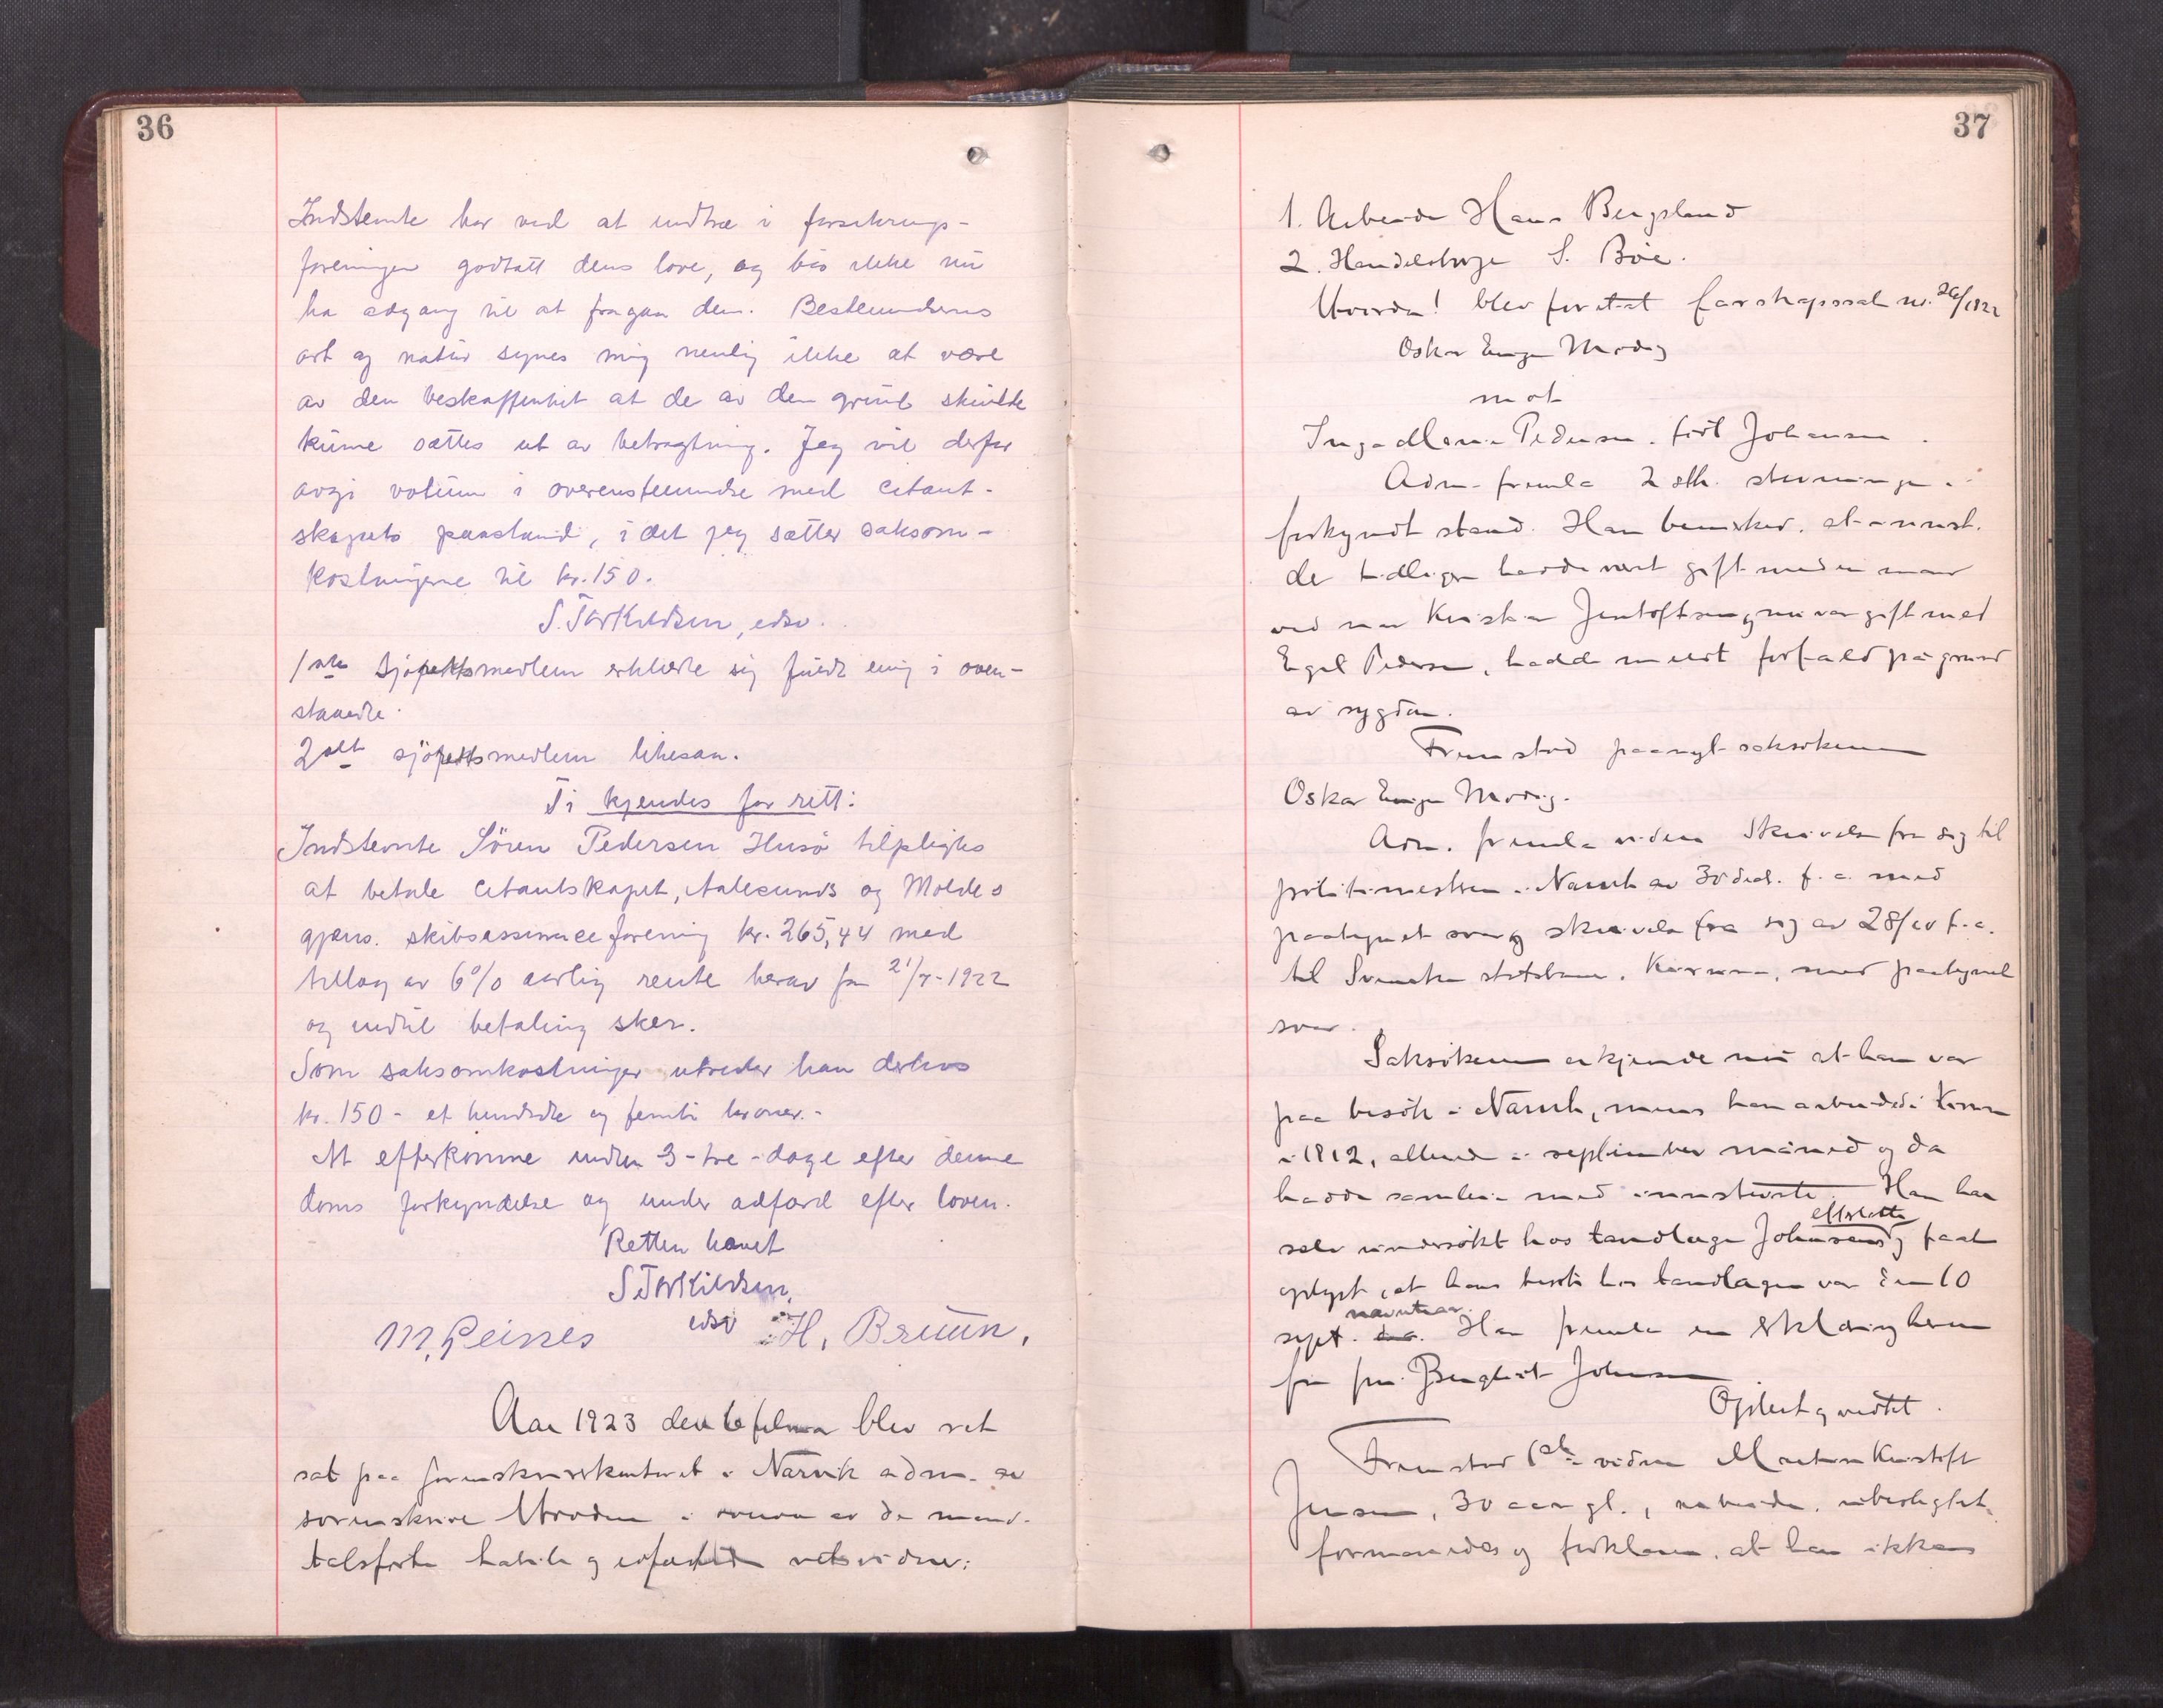 36
Indstevnte har ved at indtræ i forsikrings-
foreningen godtatt dens love, og bør ikke nu
ha adgang til at fragaa dem. Bestemmelsens
art og natur synes mig nemlig ikke at være
av den beskaffenhet at de av den grund skulde
kunne sættes ut av betragtning. Jeg vil derfor
avgi votum i overensstemmelse med citant-
skapets paastand, i det jeg sætter saksom-
kostningerne til kr. 150.
S. Torkildsen, edsv.
1ste sjörettsmedlem erklærte sig fuldt enig i oven-
staaende.
2det sjörettsmedlem likesaa.
Ti kjendes for rett:
Indstevnte Sören Pedersen Husö tilpligtes
at betale citantskapet, Aalesunds og Moldes
gjens. skibsassuranceforening kr. 265,44 med
tillæg av 6% aarlig rente herav fra 21/7-1922
og indtil betaling sker.
Som saksomkostninger utreder han derhos
kr. 150 - et hundrede og femti kroner.-
At efterkomme inden 3-tre-dage efter denne
doms forkyndelse og under adfærd efter loven.
Retten hævet
S Torkildsen,
edsv
M. Reines H. Bruun,
Aar 1923 den 6 februar blev ret
sat paa sorenskriverkontoret i Narvik adm. av
sorenskriver i nærvær av de mand-
talsførte habile og edfæstede retsvidner:
37
1. Arbeider Hans Bergsland
2. Handelsbetj. S. Böe.
Hvorda! blev foretat farskapssak nr. 26/1922
Oskar Eugen Modig
mot
Inga Pedersen, född Johansen.
Adm. fremla 2 stk. stevninger i
forkyndt stand. Han bemerket, at innst.
der tidligere hadde vært gift med en mand
ved navn Jentoftsen og nu var gift med
Egil Pedersen, hadde meldt forfald på grund
av sygdom.
Fremstod paanyt saksökeren
Oskar Eugen Modig.
Adm. fremla videre skrivelse fra sig til
politimesteren i Narvik av 30 f. a. med
paategnet svar og skrivelse fra sig av 28/10 f. a.
til Svenska statsban. Kiruna, med paategnet
svar.
Saksökeren erkjende nu at han var
paa besök i Narvik, mens han arbeidde i
i 1912, allerede i september måned og da
hadde samleie med innstevnte. Han har
efterlatte
selv undersökt hos tandlæge Johnsens og faat
oplyst, at hans besök hos tandlægen var den 10
nævnte aar.
sept. Han fremla en erklæring herom
fra fru Johnsen
Oplest og vedtat.
Fremstod 1ste vidne Martin Kristoff.
Jensen, 30 aar gl., arbeider, ubeslegtet,
formanedes og forklarer, at han ikke